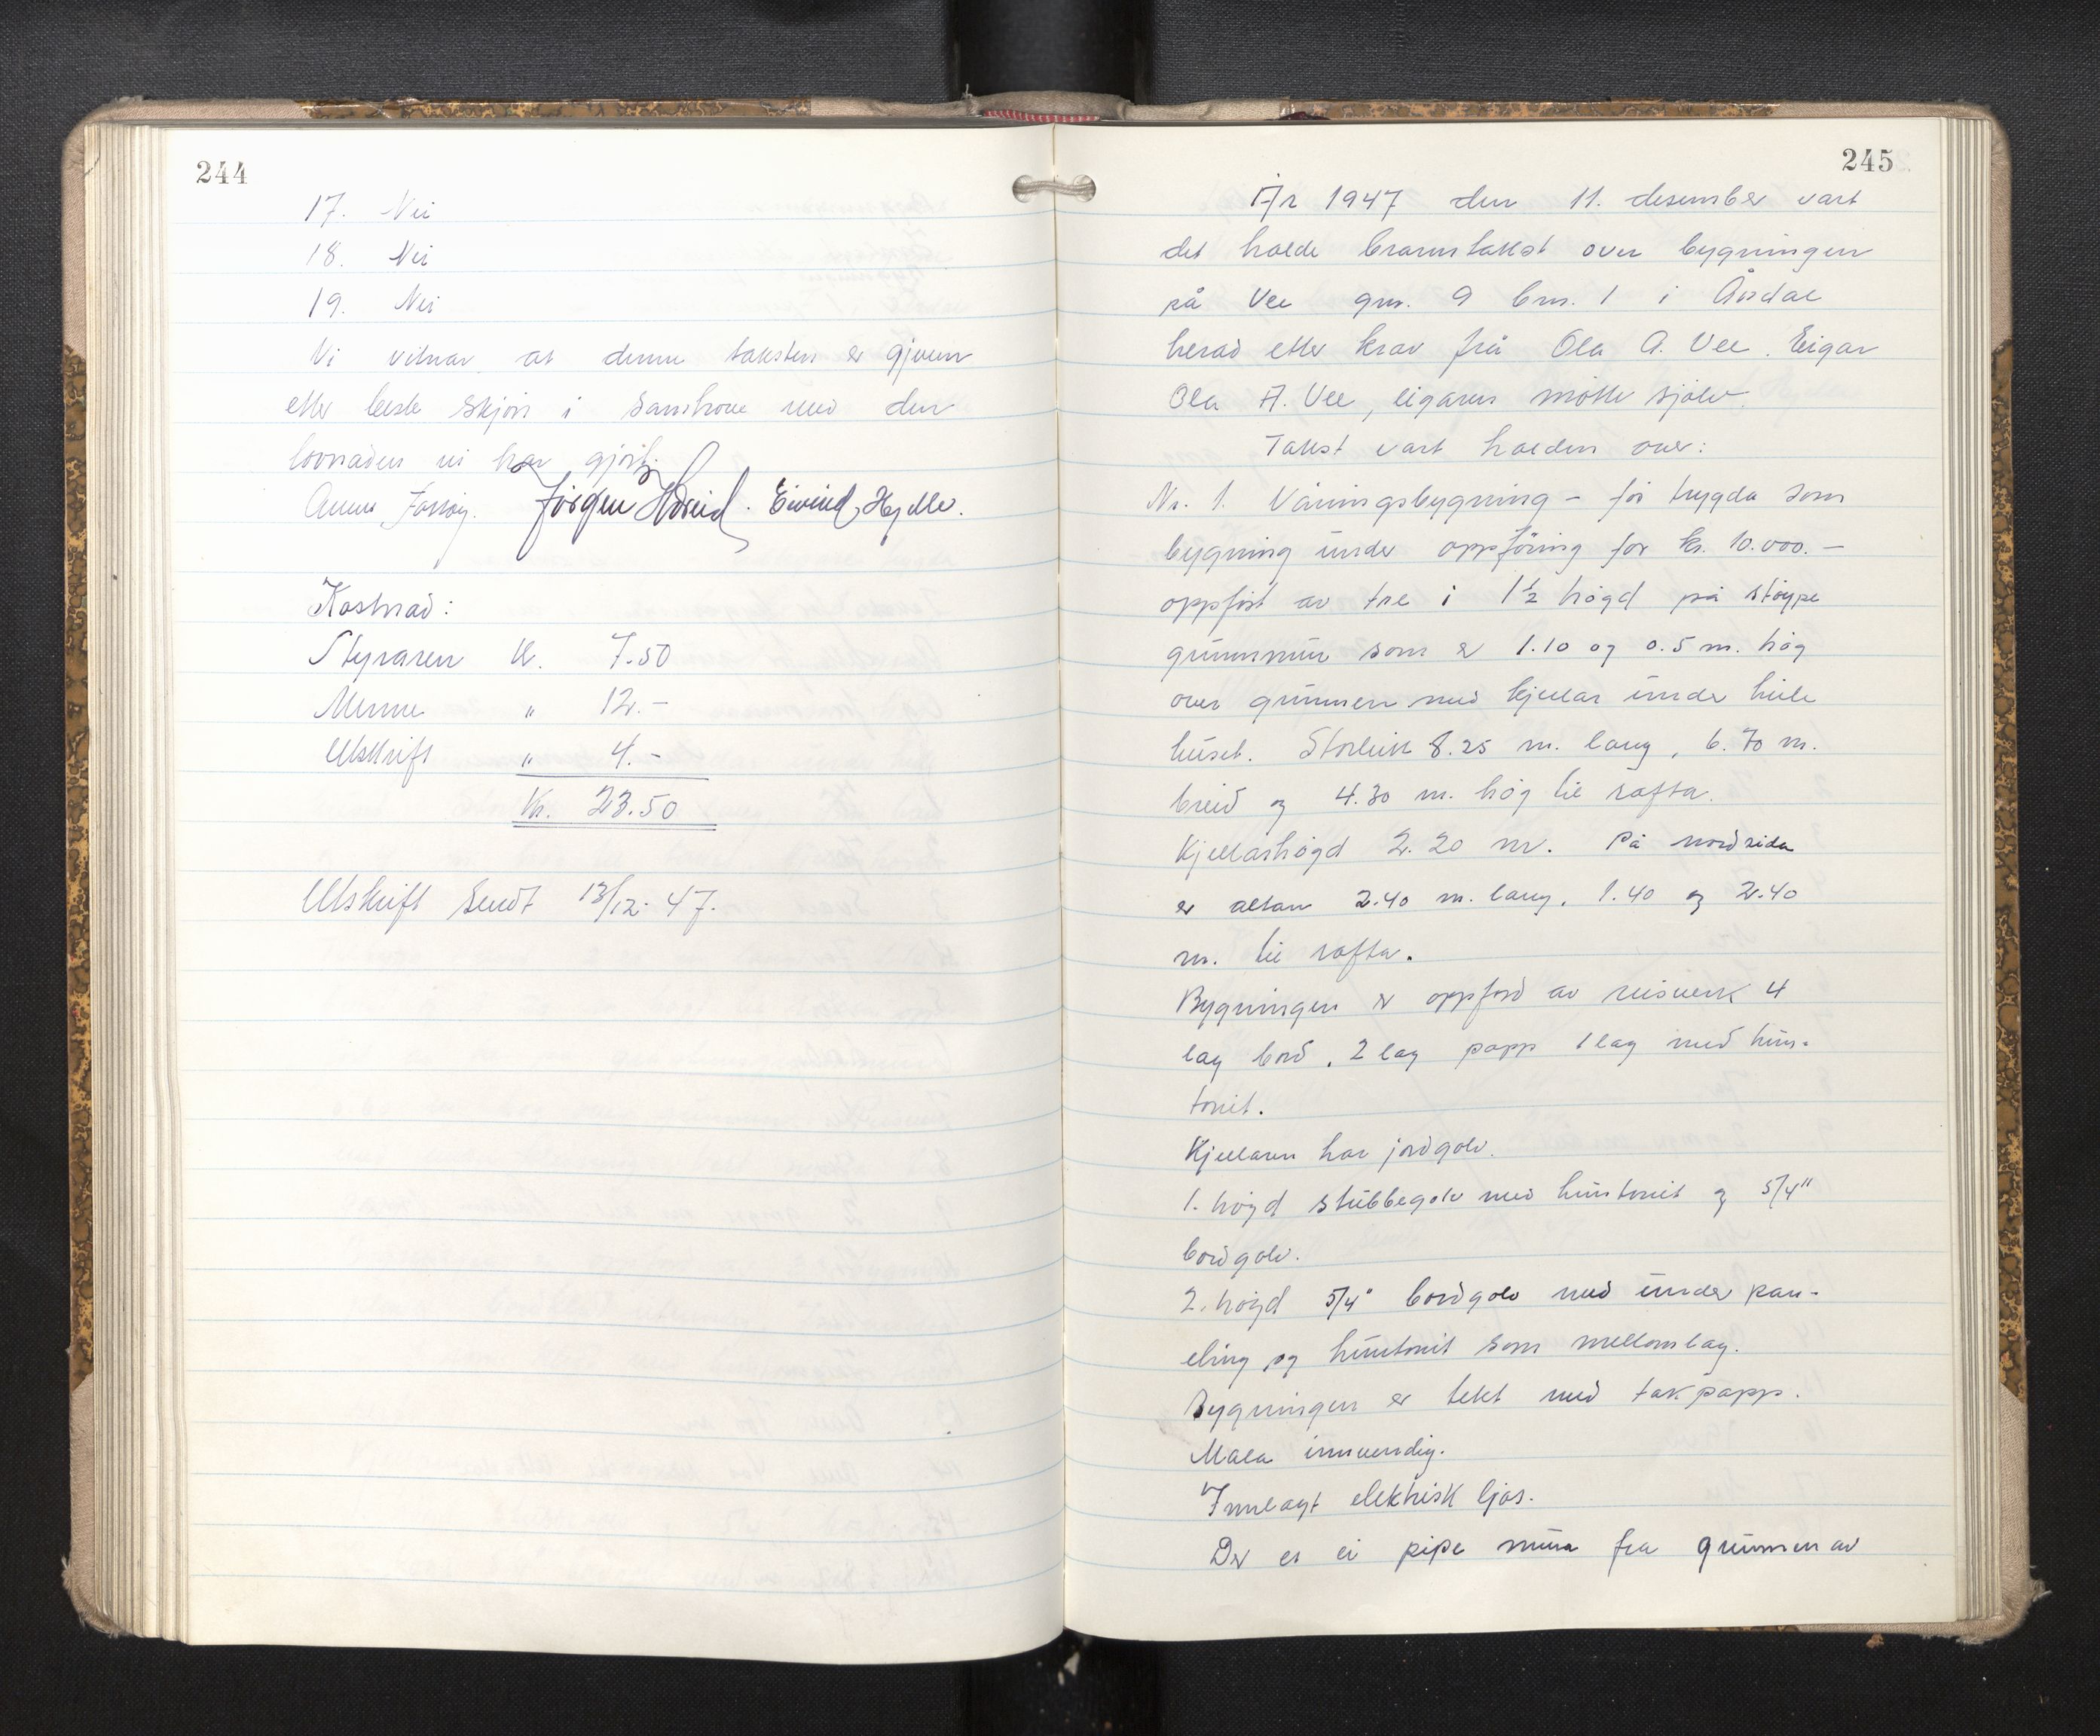 244
17. Nei
18. Nei
19. Nei
Vi vitnar at denne taksten er gjeven
etter beste skjøn i samhøve med den
lovnaden vi har gjort.
Jørgen Hereid. Eivind Hjelle.
Kostnad:
Styraren kr. 7.50
Menne " 12.-
Utskrift " 4.-
Kr. 23.50
Utskrift sendt 13/12. 47.
245
År 1947 den 11. desember vart
det halde branntakst over bygningen
på Vee gnr. 9 bnr. 1 i Årdal
herad etter krav frå Ola A. Vee. Eigar
Ola A. Vee, eigaren møtte sjølv.
Takst vart halden over:
Nr. 1. Våningsbygning - før trygda som
bygning under oppføring for kr. 10.000.-
oppført av tre i 1½ høgd på støype
grunnmur som er 1.10 og 0.5 m. høg
over grunnen med kjellar under heile
huset. Storleik 8.25 m. lang, 6.70 m.
breid og 4.30 m. høg til rafta.
Kjellarhøgd 2.20 m. På nordsida
er altan 2.40 m. lang, 1.40 og 2.40
m. til rafta.
Bygningen er oppførd av reisverk 4
lag bord, 2 lag papp 1 lag med hun-
tonit.
Kjellaren har jordgolv.
1. høgd stubbegolv med huntonit og 5/4"
bordgolv.
2. høgd 5/4" bordgolv med under pan-
eling og huntonit som mellomlag.
Bygningen er tekt med takpapp.
Mala innvendig.
Innlagt elektrisk ljos.
Der er ei pipe mura fra grunnen av